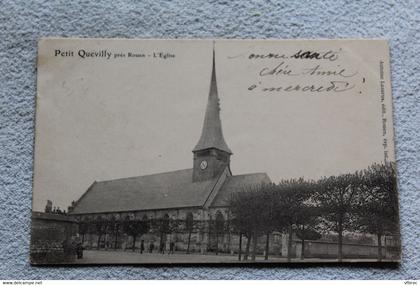 Petit Quevilly près Rouen - L'Eglise
bonne santé
chère amie
à mercredi
Antoine Lazarus, édit., Rouen, rep. int.